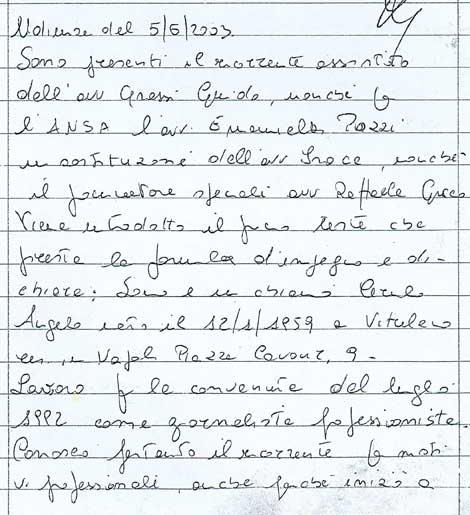 Udienza del 5/6/2003
Sono presenti il ricorrente assistito
dell'avv Grassi Guido, nonché per
l'ANSA l'avv. Emanuela Pazzi
in sostituzione dell'avv , nonché
il procuratore speciali avv Raffaele Greco
Viene introdotto il primo teste che
presta la formula d'impegno e di-
chiara: Sono e mi chiamo
Angelo nato il 12/1/1959 a Vitulano
res. in Napoli Piazza Cavour, 9 -
Lavoro per la convenuta del luglio
1992 come giornalista professionista.
Conosco pertanto il ricorrente per moti-
vi professionali, anche perché iniziò a